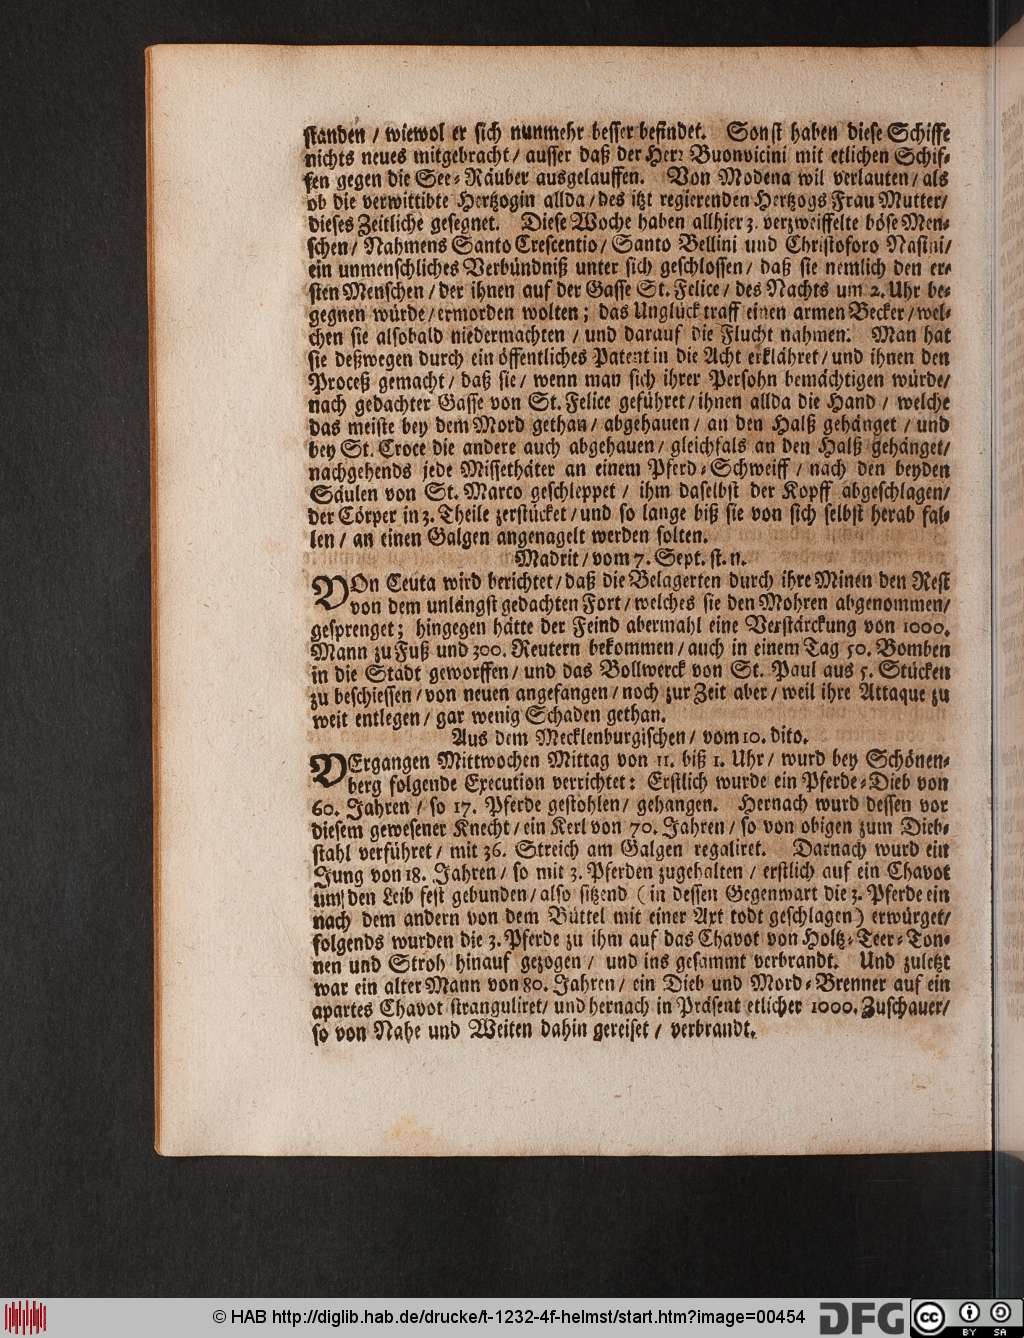 standen / wiewol er sich nunmehr besser befindet. Sonst haben diese Schiffe
nichts neues mitgebracht / ausser daß der Herr Buonvicini mit etlichen Schif-
fen gegen die See-Räuber ausgelauffen. Von Modena wil verlauten / als
ob die verwittibte Hertzogin allda / des itzt regierenden Hertzogs Frau Mutter /
dieses Zeitliche gesegnet. Diese Woche haben allhier 3. verzweiffelte böse Men-
schen / Nahmens Santo Crescentio / Santo Bellini und Christoforo Nasini /
ein unmenschliches Verbündniß unter sich geschlossen / daß sie nemlich den er-
sten Menschen / der ihnen auf der Gasse St. Felice / des Nachts um 2. Uhr be-
gegnen würde / ermorden wolten ; das Unglück traff einen armen Becker / wel-
chen sie alsobald niedermachten / und darauf die Flucht nahmen. Man hat
sie deßwegen durch ein öffentliches Patent in die Acht erklähret / und ihnen den
Proceß gemacht / daß sie / wenn man sich ihrer Persohn bemächtigen würde /
nach gedachter Gasse von St. Felice geführet / ihnen allda die Hand / welche
das meiste bey dem Mord gethan / abgehauen / an den Halß gehänget / und
bey St. Croce die andere auch abgehauen / gleichfals an den Halß gehänget /
nachgehends jede Missethäter an einem Pferd-Schweiff / nach den beyden
Säulen von St. Marco geschleppet / ihm daselbst der Kopff abgeschlagen /
der Cörper in 3. Theile zerstücket / und so lange biß sie von sich selbst herab fal-
len / an einen Galgen angenagelt werden solten.
Madrit / vom 7. Sept. st. n.
VOn Ceuta wird berichtet / daß die Belagerten durch ihre Minen den Rest
von dem unlängst gedachten Fort / welches sie den Mohren abgenommen /
gesprenget ; hingegen hätte der Feind abermahl eine Verstärckung von 1000.
Mann zu Fuß und 300. Reutern bekommen / auch in einem Tag 50. Bomben
in die Stadt geworffen / und das Bollwerck von St. Paul aus 5. Stücken
zu beschiessen / von neuen angefangen / noch zur Zeit aber / weil ihre Attaque zu
weit entlegen / gar wenig Schaden gethan.
Aus dem Mecklenburgischen / vom 10. dito.
VErgangen Mittwochen Mittag von 11. biß 1. Uhr / wurd bey Schönen-
berg folgende Execution verrichtet : Erstlich wurde ein Pferde-Dieb von
60. Jahren / so 17. Pferde gestohlen / gehangen. Hernach wurd dessen vor
diesem gewesener Knecht / ein Kerl von 70. Jahren / so von obigen zum Dieb-
stahl verführet / mit 36. Streich am Galgen regaliret. Darnach wurd ein
Jung von 18. Jahren / so mit 3. Pferden zugehalten / erstlich auf ein Chavot
um den Leib fest gebunden / also sitzend ( in dessen Gegenwart die 3. Pferde ein
nach dem andern von dem Büttel mit einer Axt todt geschlagen ) erwürget /
folgends wurden die 3. Pferde zu ihm auf das Chavot von Holtz-Teer-Ton-
nen und Stroh hinauf gezogen / und ins gesammt verbrandt. Und zuletzt
war ein alter Mann von 80. Jahren / ein Dieb und Mord-Brenner auf ein
apartes Chavot stranguliret / und hernach in Präsent etlicher 1000. Zuschauer /
so von Nahe und Weiten dahin gereiset / verbrandt.
© HAB http://diglib.hab.de/drucke/t-1232-4f-helmst/start.htm?image=00454
DFG
cc BY SA